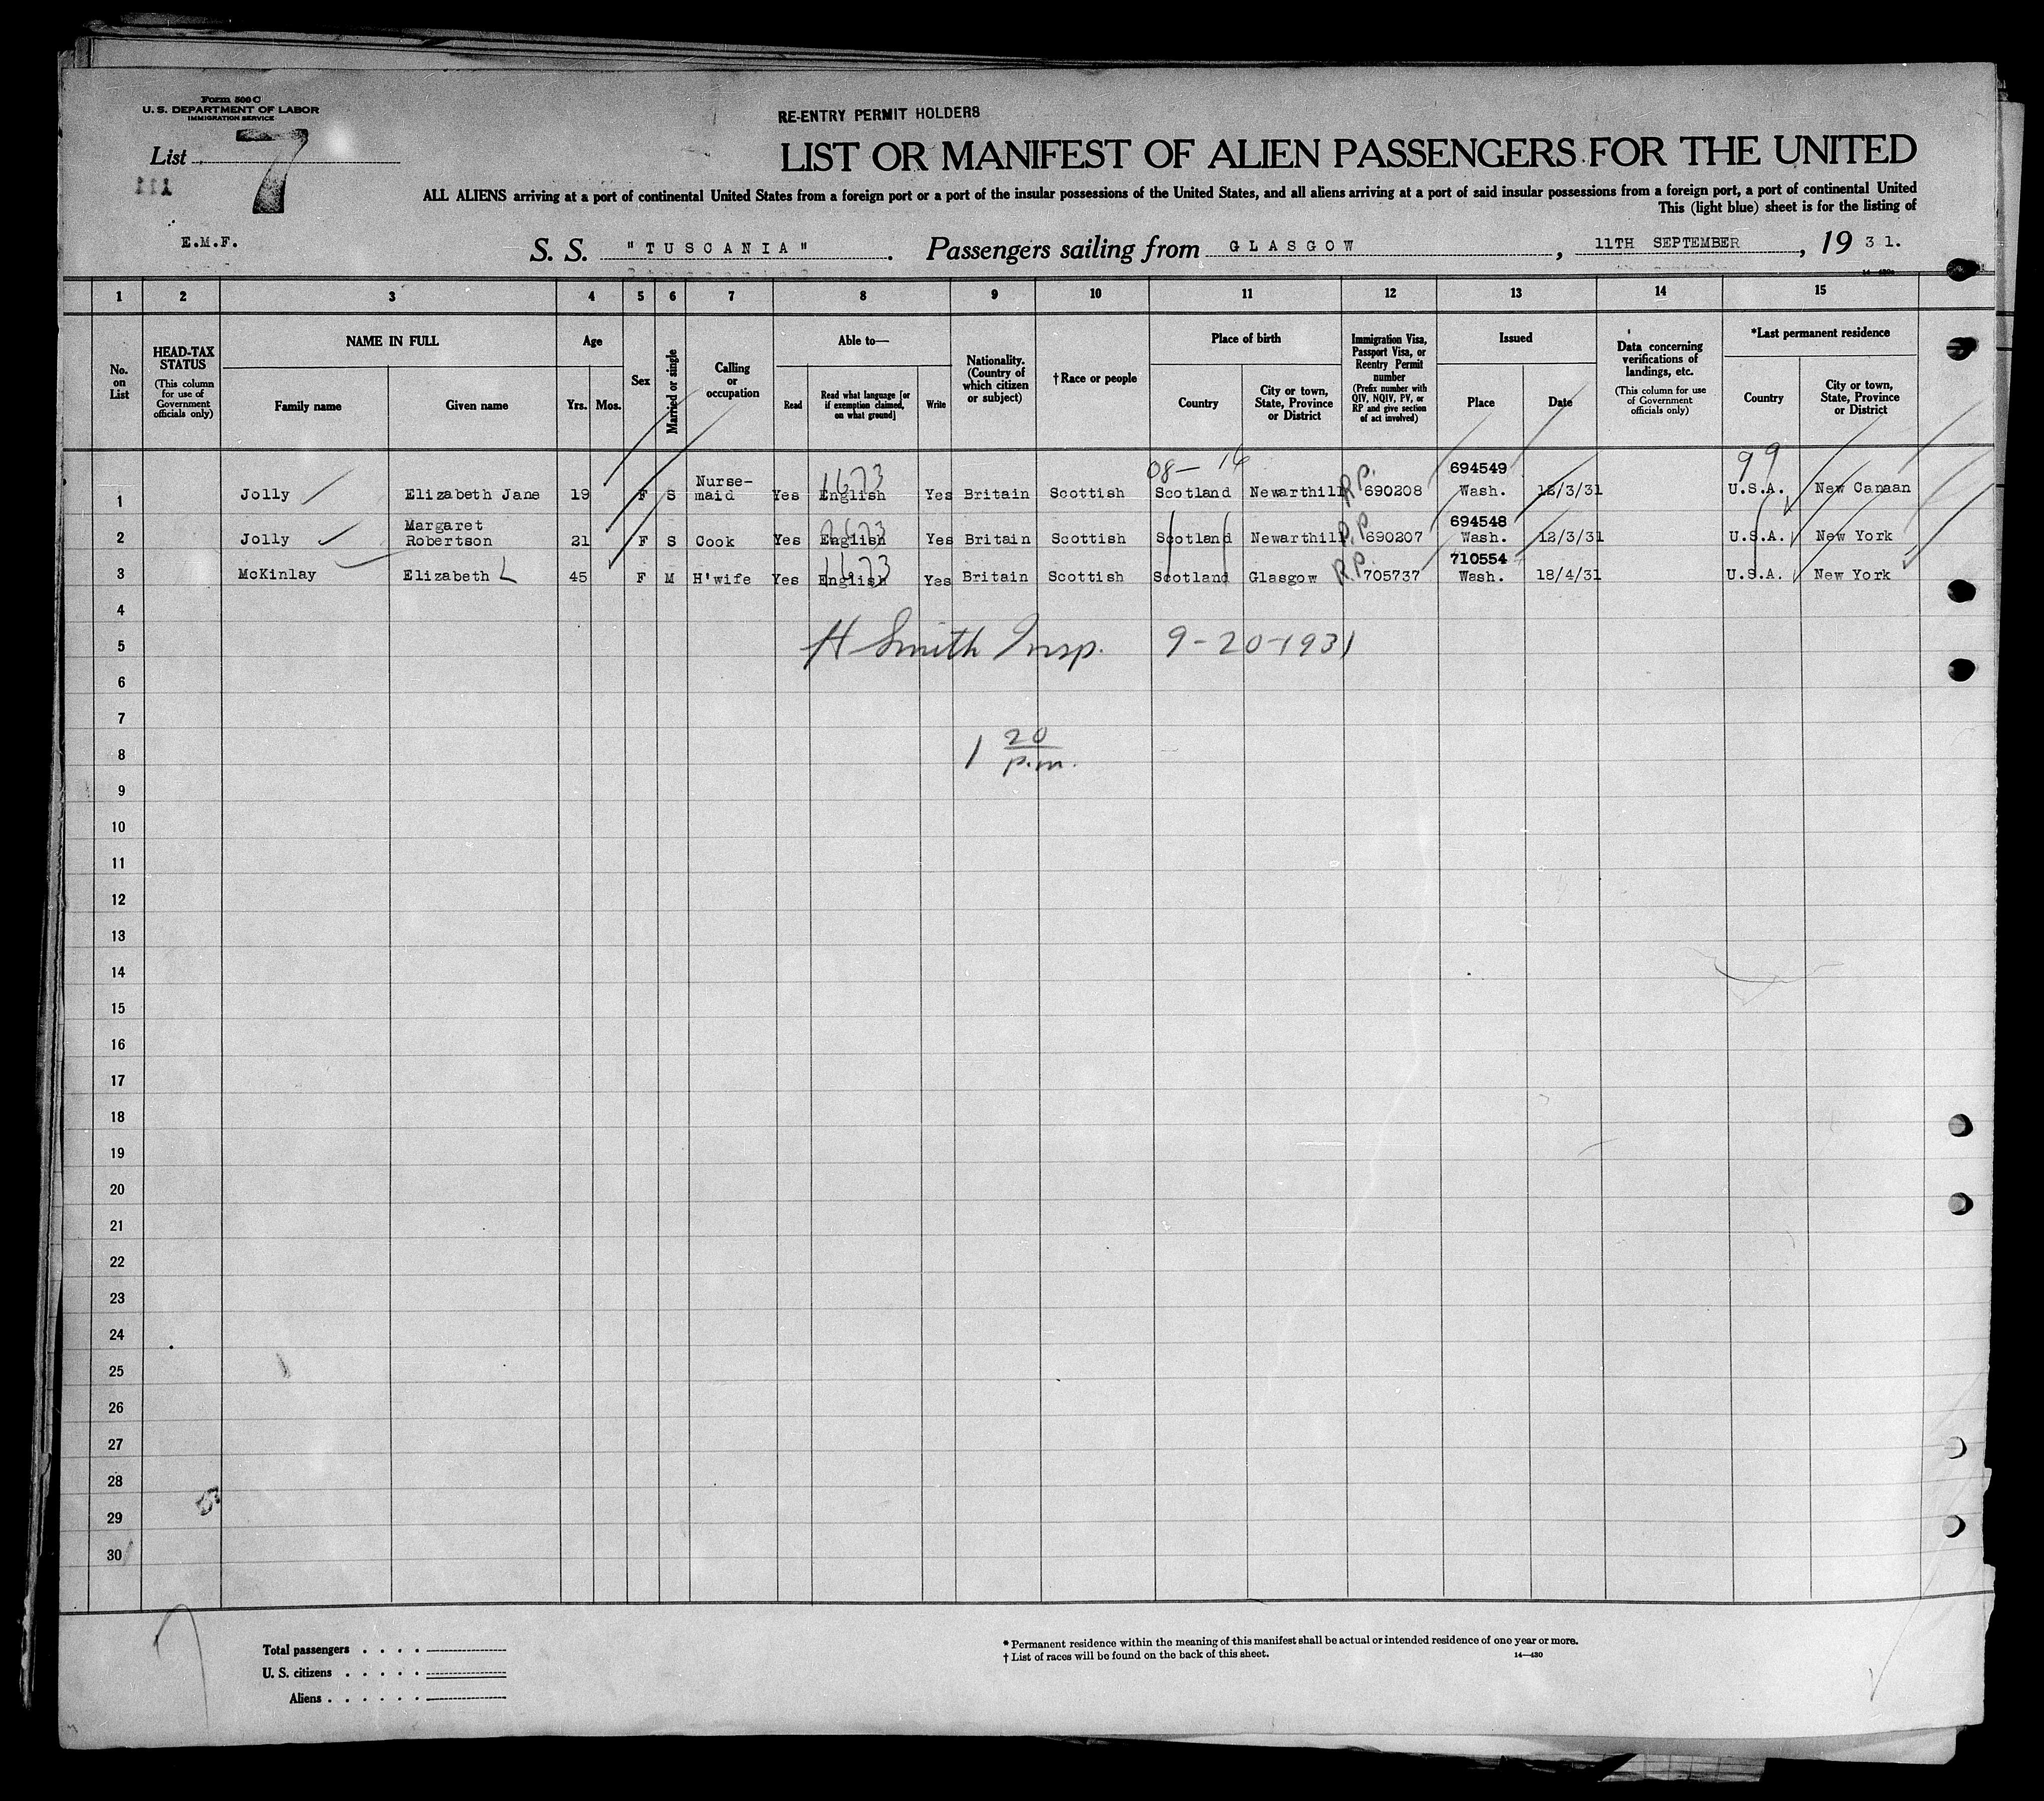 Form 500 C
U. S. DEPARTMENT OF LABOR
IMMIGRATION SERVICE
RE-ENTRY PERMIT HOLDERS
List 7
111
LIST OR MANIFEST OF ALIEN PASSENGERS FOR THE UNITED
ALL ALIENS arriving at a port of continental United States from a foreign port or a port of the insular possessions of the United States, and all aliens arriving at a port of said insular possessions from a foreign port, a port of continental United
This (light blue) sheet is for the listing of
E.M.F.
S. S. "TUSCANIA". Passengers sailing from GLASGOW, 11TH SEPTEMBER, 19 31.
1 2 3 4 5 6 7 8 9 10 11 12 13 14 15
No. on List
HEAD-TAX STATUS
(This column for use of Government officials only)
NAME IN FULL
Family name
Given name
Age
Yrs. Mos.
Sex
Married or single
Calling or occupation
Able to—
Read
Read what language [or if exemption claimed, on what ground]
Write
Nationality. (Country of which citizen or subject)
†Race or people
Place of birth
Country
City or town, State, Province or District
Immigration Visa, Passport Visa, or Reentry Permit number
(Prefix number with QIV, NQIV, PV, or RP and give section of act involved)
Issued
Place
Date
Data concerning verifications of landings, etc.
(This column for use of Government officials only)
*Last permanent residence
Country
City or town, State, Province or District
08— 16
99
1673
694549
1 Jolly Elizabeth Jane 19 F S Nurse-maid Yes English Yes Britain Scottish Scotland Newarthill R.P. 690208 Wash. 12/3/31 U.S.A. New Canaan
694548
2 Jolly Margaret Robertson 21 F S Cook Yes English Yes Britain Scottish Scotland Newarthill R.P. 690207 Wash. 12/3/31 U.S.A. New York
1673
710554
3 McKinlay Elizabeth L 45 F M H'wife Yes English Yes Britain Scottish Scotland Glasgow R.P. 705737 Wash. 18/4/31 U.S.A. New York
4
5 H Smith Insp. 9-20-1931
6
7
8 1 20 p.m.
9
10
11
12
13
14
15
16
17
18
19
20
21
22
23
24
25
26
27
28
29
30
Total passengers . . . .
U. S. citizens . . . . .
Aliens . . . . . .
* Permanent residence within the meaning of this manifest shall be actual or intended residence of one year or more.
† List of races will be found on the back of this sheet.
14—430